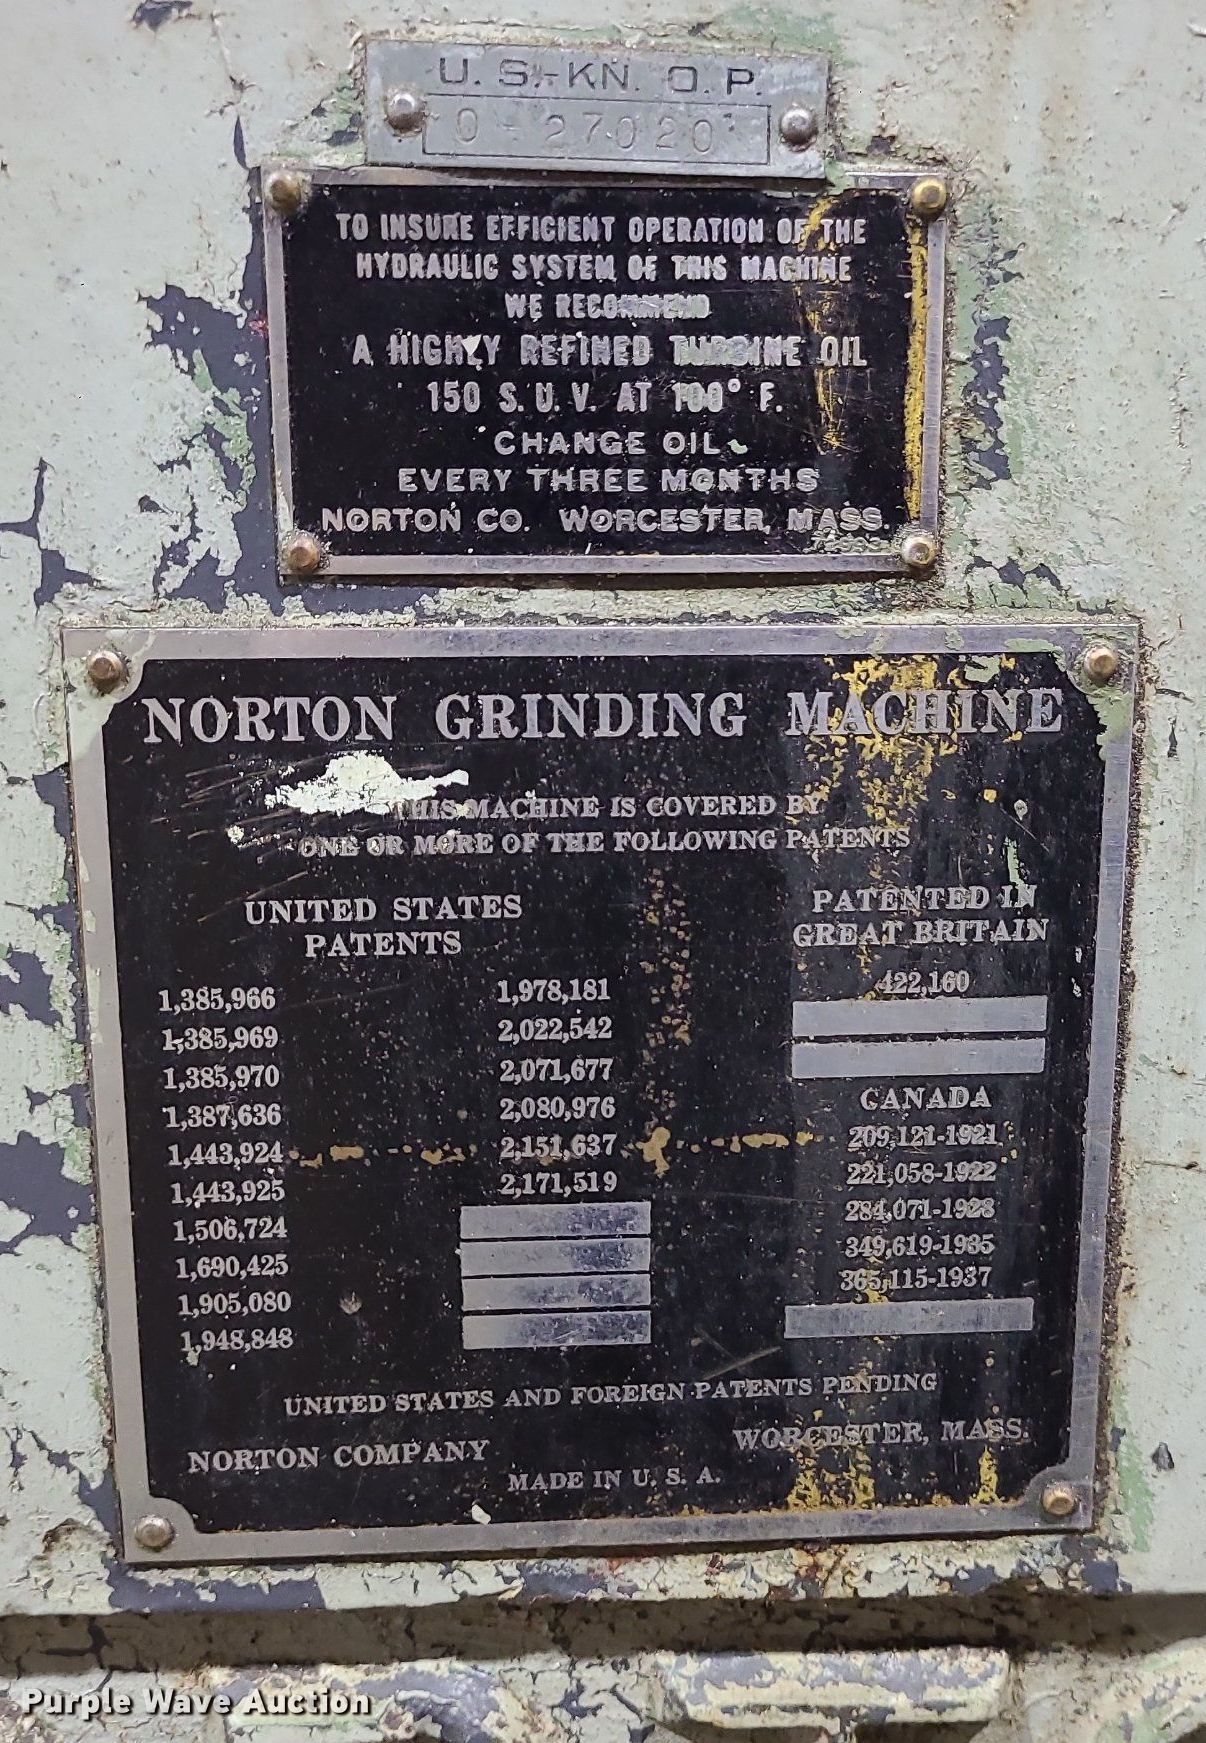 U. S.-KN. O.P.
0-27020
TO INSURE EFFICIENT OPERATION OF THE
HYDRAULIC SYSTEM OF THIS MACHINE
WE RECOMMEND
A HIGHLY REFINED TURBINE OIL
150 S. U. V. AT 100° F.
CHANGE OIL
EVERY THREE MONTHS
NORTON CO. WORCESTER, MASS.
NORTON GRINDING MACHINE
THIS MACHINE IS COVERED BY
ONE OR MORE OF THE FOLLOWING PATENTS
UNITED STATES
PATENTS
1,385,966
1,385,969
1,385,970
1,387,636
1,443,924
1,443,925
1,506,724
1,690,425
1,905,080
1,948,848
1,978,181
2,022,542
2,071,677
2,080,976
2,151,637
2,171,519
PATENTED IN
GREAT BRITAIN
422,160
CANADA
209,121-1921
221,058-1922
284,071-1928
349,619-1935
365,115-1937
UNITED STATES AND FOREIGN PATENTS PENDING
NORTON COMPANY WORCESTER, MASS.
MADE IN U. S. A.
Purple Wave Auction